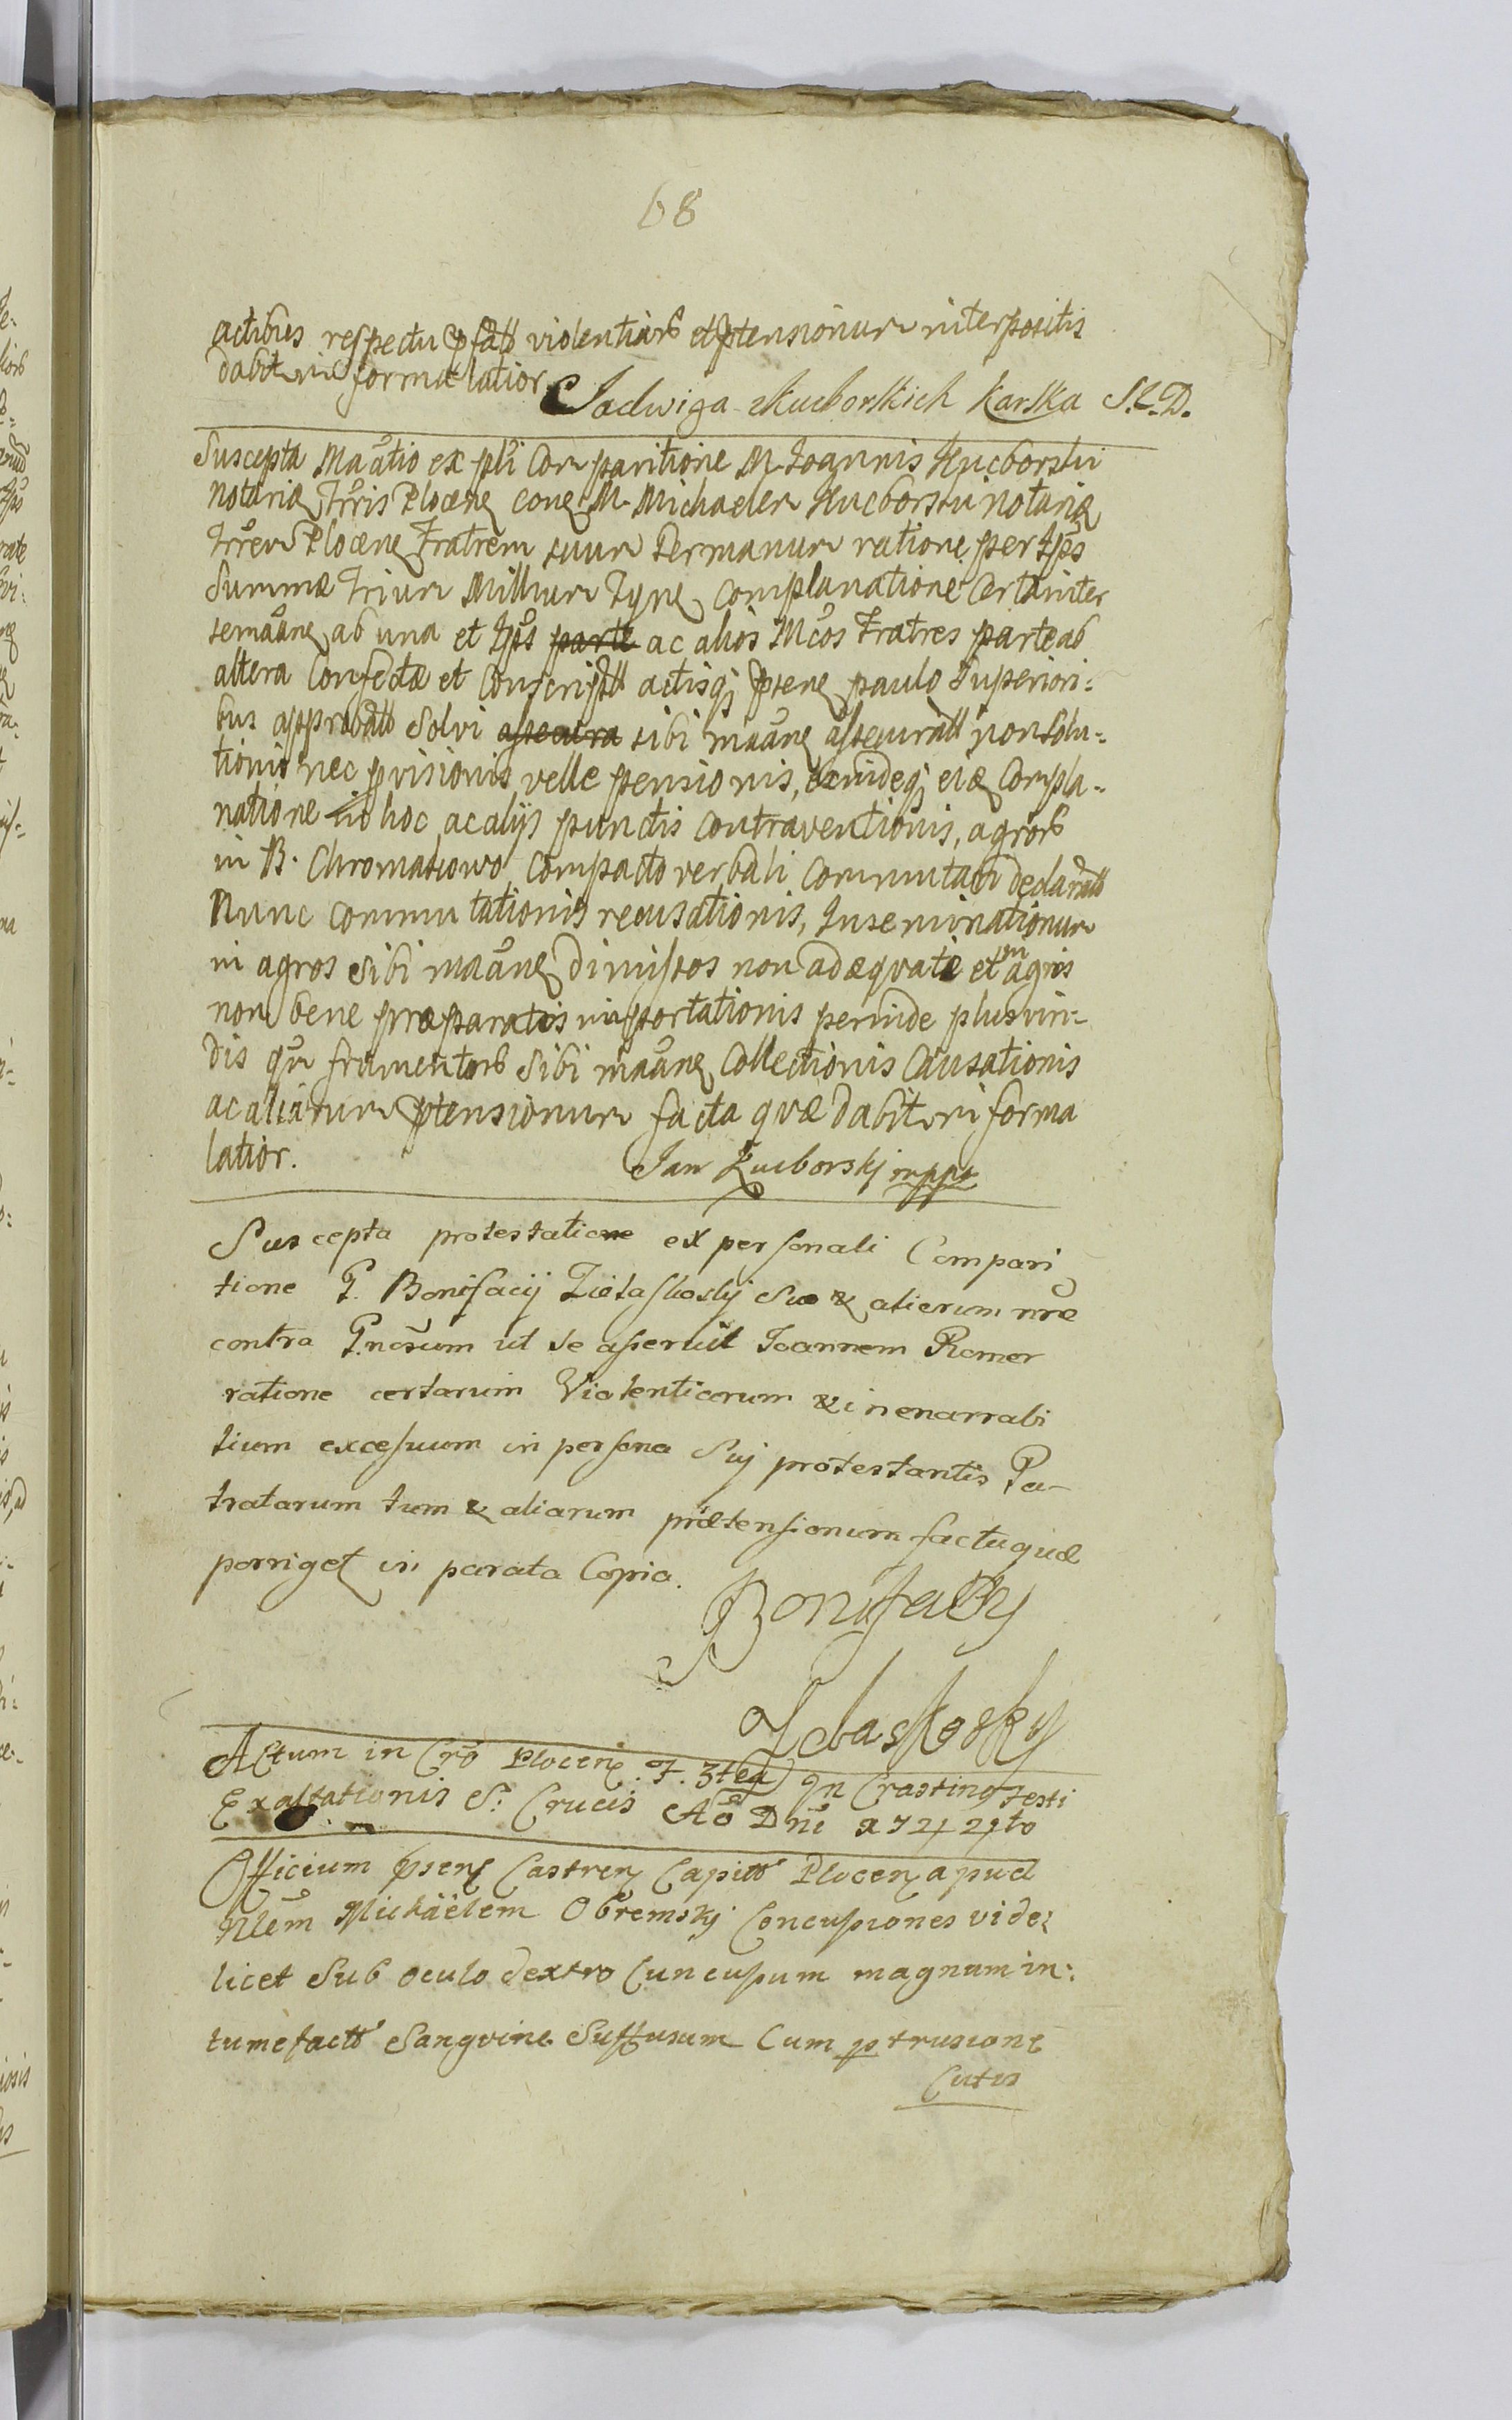 68
actibus respectu pfatt violentiarb et ptensionum interpositis
dabit in forma latior
Jadwiga Kucborskich Karska S.C.D.
Suscepta Maatio ex pli Comparitione M. Joannis Kucborski
notariæ Trris Plocen contra M. Michaelem Kucborski notariu
Trrem Plocen Fratrem suum Germanum ratione per Ips
Summæ Trium Millium Tynf Complanatione Certa inter
se maane ab una et Ips parte ac alios Mcos Fratres parte ab
altera Confecta et Conscript actisq psene paulo Superiori-
bus approbatt Solvi assecura sibi maane assecuratt non Solu-
tionis nec pvisionis velle pensionis, exindeq eiæ Compla-
natione in hoc ac alijs punctis Contraventionis, agrorb
in B. Chromakowo Compacto verbali Commutari declaratt
Nunc Commutationis recusationis, Inseminationum
in agros Sibi maane dimissos non adæquate et in agris
non bene præparatis importationis perinde plus vin-
dis qm frumentorb Sibi maane Collectionis Causationis
ac aliarum ptensionum facta quæ dabit in forma
latior.
Jan Kucborskj mppa
Suscepta protestatione ex personali Compari
tione G. Bonifacij Zdbaskoskij Suo & aliorum nre
contra Gnosum ut se aseruit Joannem Romer
ratione certarum Violentiarum & inenarrabi
lium excesuum in persona Sui protestantis Pa-
tratarum tum & aliarum prætensionum factu quæ
porriget in parata Copia.
Bonifacy
Zdbaskosky
Actum in Cro Plocen. F. 3tia In Crastino Festi
Exaltationis S. Crucis Ao Dni 1744to
Officium psens Castren Capitt Plocen apud
Nlem Michäëlem Obremskj Concusiones vide-
licet Sub oculo dextro Cuncusum magnam in-
tumefactt Sangvine Suffusum Cum ptrusione
Cutis